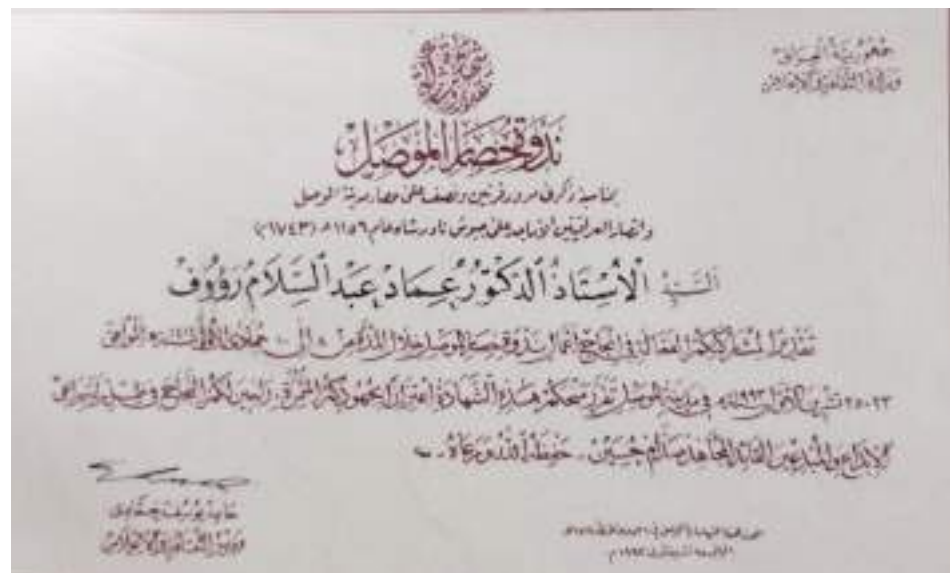 جمهورية العراق
وزارة الثقافة والاعلام
ندوة حصار الموصل
بمناسبة ذكرى مرور قرنين ونصف على حصار مدينة الموصل
وانتصار العراقيين الأماجد على جيوش نادر شاه عام ١١٥٦هـ (١٧٤٣م)
السيد الأستاذ الدكتور عماد عبد السلام رؤوف
تقديراً لمشاركتكم الفعالة في إنجاح أعمال ندوة حصار الموصل خلال المدة من ٨ إلى ١٠ جمادى الأولى الموافق
٢٣-٢٥ تشرين الأول ١٩٩٣ في مدينة الموصل تقرر منحكم هذه الشهادة اعتزازاً بجهودكم
للإبداع والمبدعين القائد المجاهد صدام حسين حفظه الله ورعاه
حامد يوسف حمادي
وزير الثقافة والاعلام